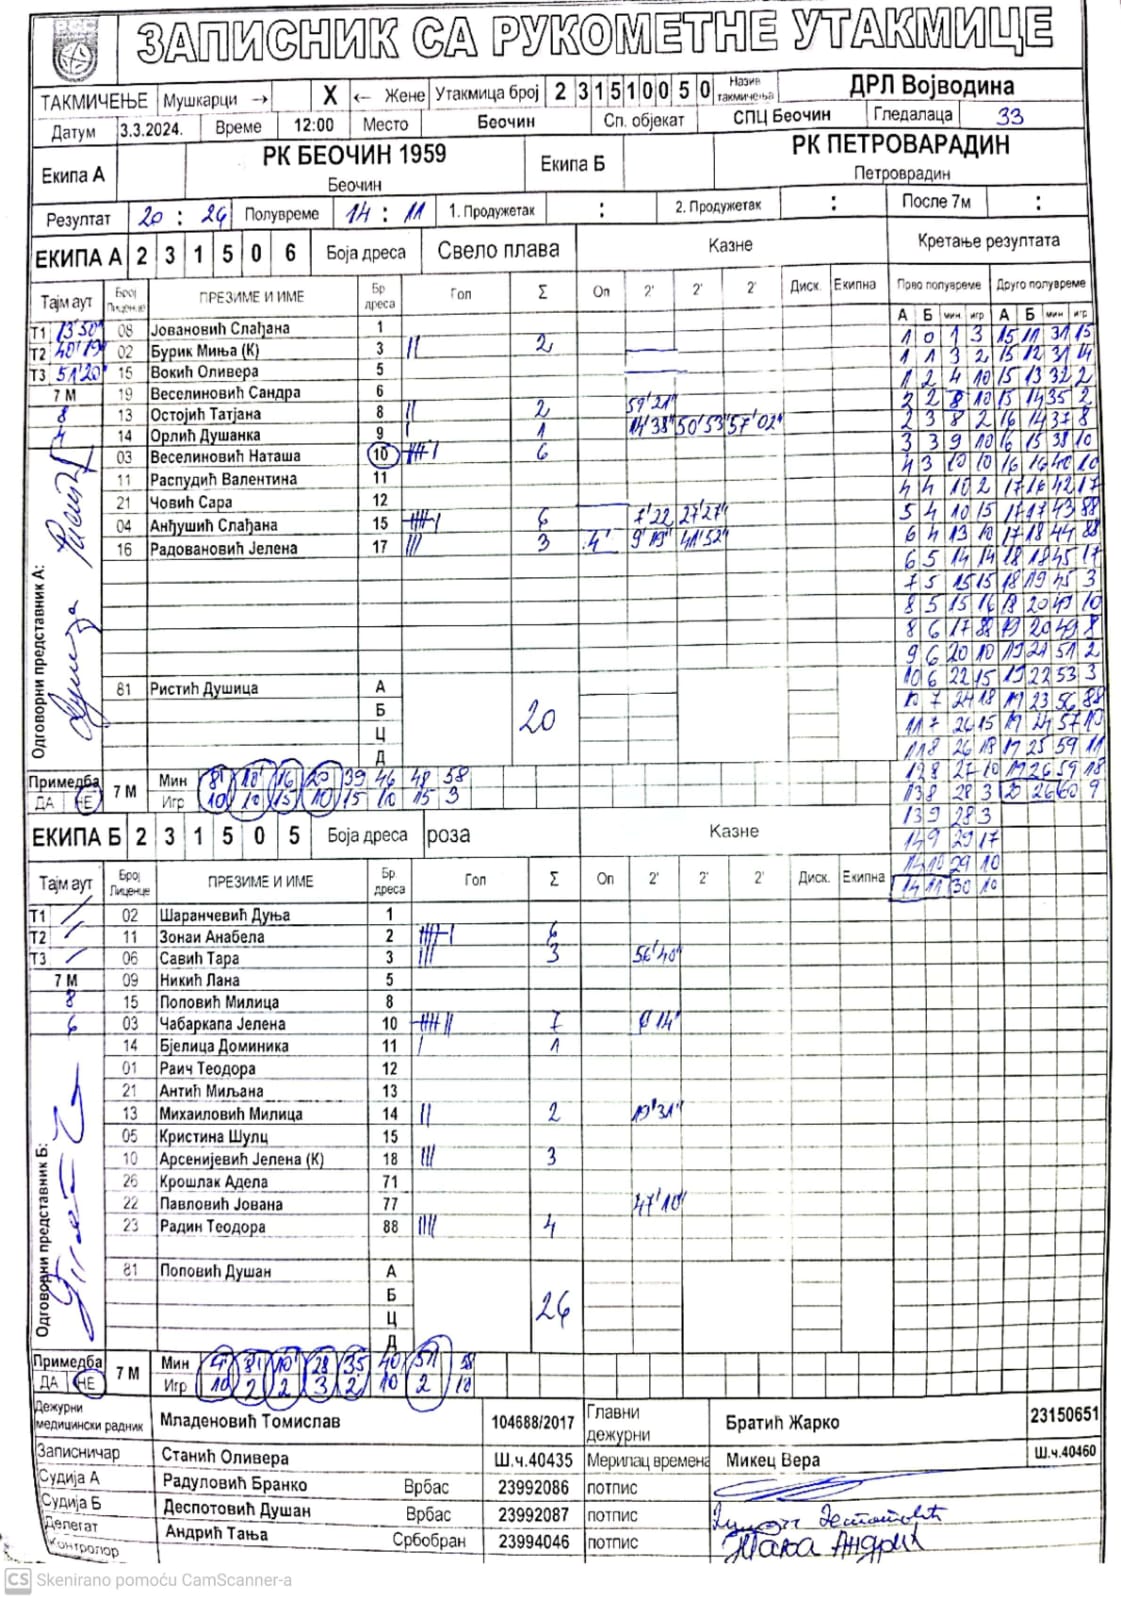 ЗАПИСНИК СА РУКОМЕТНЕ УТАКМИЦЕ
ТАКМИЧЕЊЕ Мушкарци → X ← Жене Утакмица број 2 3 1 5 1 0 0 5 0 Назив такмичења ДРЛ Војводина
Датум 3.3.2024. Време 12:00 Место Беочин Сп. објекат СПЦ Беочин Гледалаца 33
Екипа А РК БЕОЧИН 1959 Беочин Екипа Б РК ПЕТРОВАРАДИН Петроврадин
Резултат 20 : 26 Полувреме 14 : 11 1. Продужетак : 2. Продужетак : После 7м :
ЕКИПА А 2 3 1 5 0 6 Боја дреса Свело плава Казне Кретање резултата
Тајм аут Број Лиценце ПРЕЗИМЕ И ИМЕ Бр дреса Гол Σ Оп 2' 2' 2' Диск. Екипна Прво полувреме Друго полувреме
А Б мин. игр А Б мин игр
Т1 13'50" 08 Јовановић Слађана 1
Т2 40'19" 02 Бурик Миња (К) 3 || 2
Т3 51'20" 15 Вокић Оливера 5
7 М 19 Веселиновић Сандра 6
8 13 Остојић Татјана 8 || 2 59'21"
4 14 Орлић Душанка 9 | 1 14'38" 50'53" 57'02"
03 Веселиновић Наташа 10 6
11 Распудић Валентина 11
21 Човић Сара 12
04 Анђушић Слађана 15 6 7'22 27'27"
16 Радовановић Јелена 17 ||| 3 4' 9'19" 41'52"
Одговорни представник А:
81 Ристић Душица А
Б
Ц
Д
20
1 0 1 3 15 11 31 15
1 1 3 2 15 12 31 14
1 2 4 10 15 13 32 2
2 2 8 10 15 14 35 2
2 3 8 2 16 14 37 8
3 3 9 10 16 15 38 10
4 3 10 10 16 16 40 10
4 4 10 2 17 16 42 17
5 4 10 15 17 17 43 88
6 4 13 10 17 18 44 88
6 5 14 14 18 18 45 17
7 5 15 15 18 19 45 3
8 5 15 16 18 20 49 10
8 6 17 88 19 20 49 8
9 6 20 10 19 21 51 2
10 6 22 15 19 22 53 3
10 7 24 18 19 23 56 88
11 7 26 15 19 24 57 10
11 8 26 18 19 25 59 11
12 8 27 10 19 26 59 18
13 8 28 3 20 26 60 9
13 9 28 3
14 9 29 17
14 10 29 10
14 11 30 10
Примедба ДА НЕ 7 М
Мин 8' 10' 16 20 39 46 48 58
Игр 10 10 15 10 15 10 15 3
ЕКИПА Б 2 3 1 5 0 5 Боја дреса роза Казне
Тајм аут Број Лиценце ПРЕЗИМЕ И ИМЕ Бр. дреса Гол Σ Оп 2' 2' 2' Диск. Екипна
Т1 / 02 Шаранчевић Дуња 1
Т2 / 11 Зонаи Анабела 2 6
Т3 / 06 Савић Тара 3 ||| 3 56'40"
7 М 09 Никић Лана 5
8 15 Поповић Милица 8
6 03 Чабаркапа Јелена 10 7
14 Бјелица Доминика 11 | 1
01 Раич Теодора 12
21 Антић Миљана 13
13 Михаиловић Милица 14 || 2 19'31"
05 Кристина Шулц 15
10 Арсенијевић Јелена (К) 18 ||| 3
26 Крошлак Адела 71
22 Павловић Јована 77 47'10"
23 Радин Теодора 88 |||| 4
Одговорни представник Б:
81 Поповић Душан А
Б
Ц
Д
26
Примедба ДА НЕ 7 М
Мин 4' 8' 10' 28 35 40 51 58
Игр 10 2 2 3 2 10 2 10
Дежурни медицински радник Младеновић Томислав 104688/2017 Главни дежурни Братић Жарко 23150651
Записничар Станић Оливера Ш.ч.40435 Мерилац времена Микец Вера Ш.ч.40460
Судија А Радуловић Бранко Врбас 23992086 потпис
Судија Б Деспотовић Душан Врбас 23992087 потпис Душан Деспотовић
Делегат Андрић Тања Србобран 23994046 потпис Тања Андрић
Контролор
CS Skenirano pomoću CamScanner-a